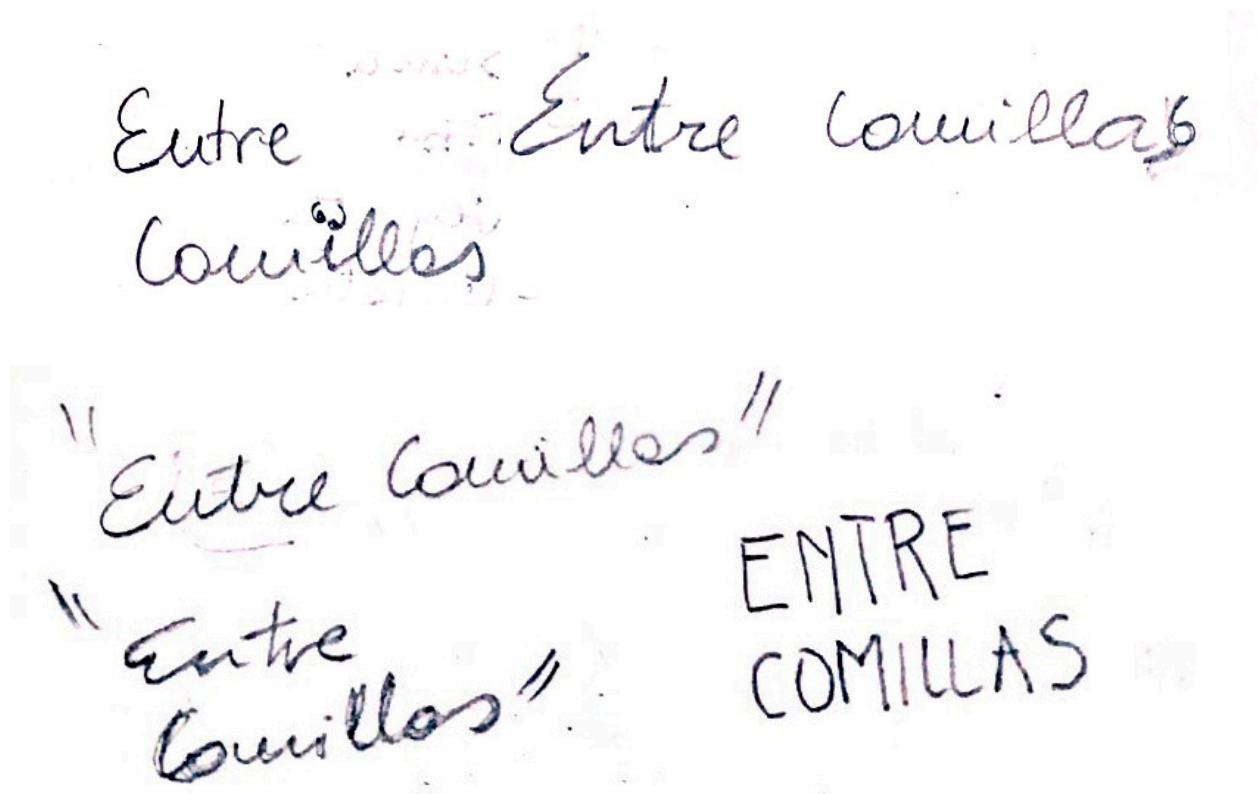 Entre
Comillas
Entre Comillas
"Entre Comillas"
"Entre
Comillas"
ENTRE
COMILLAS